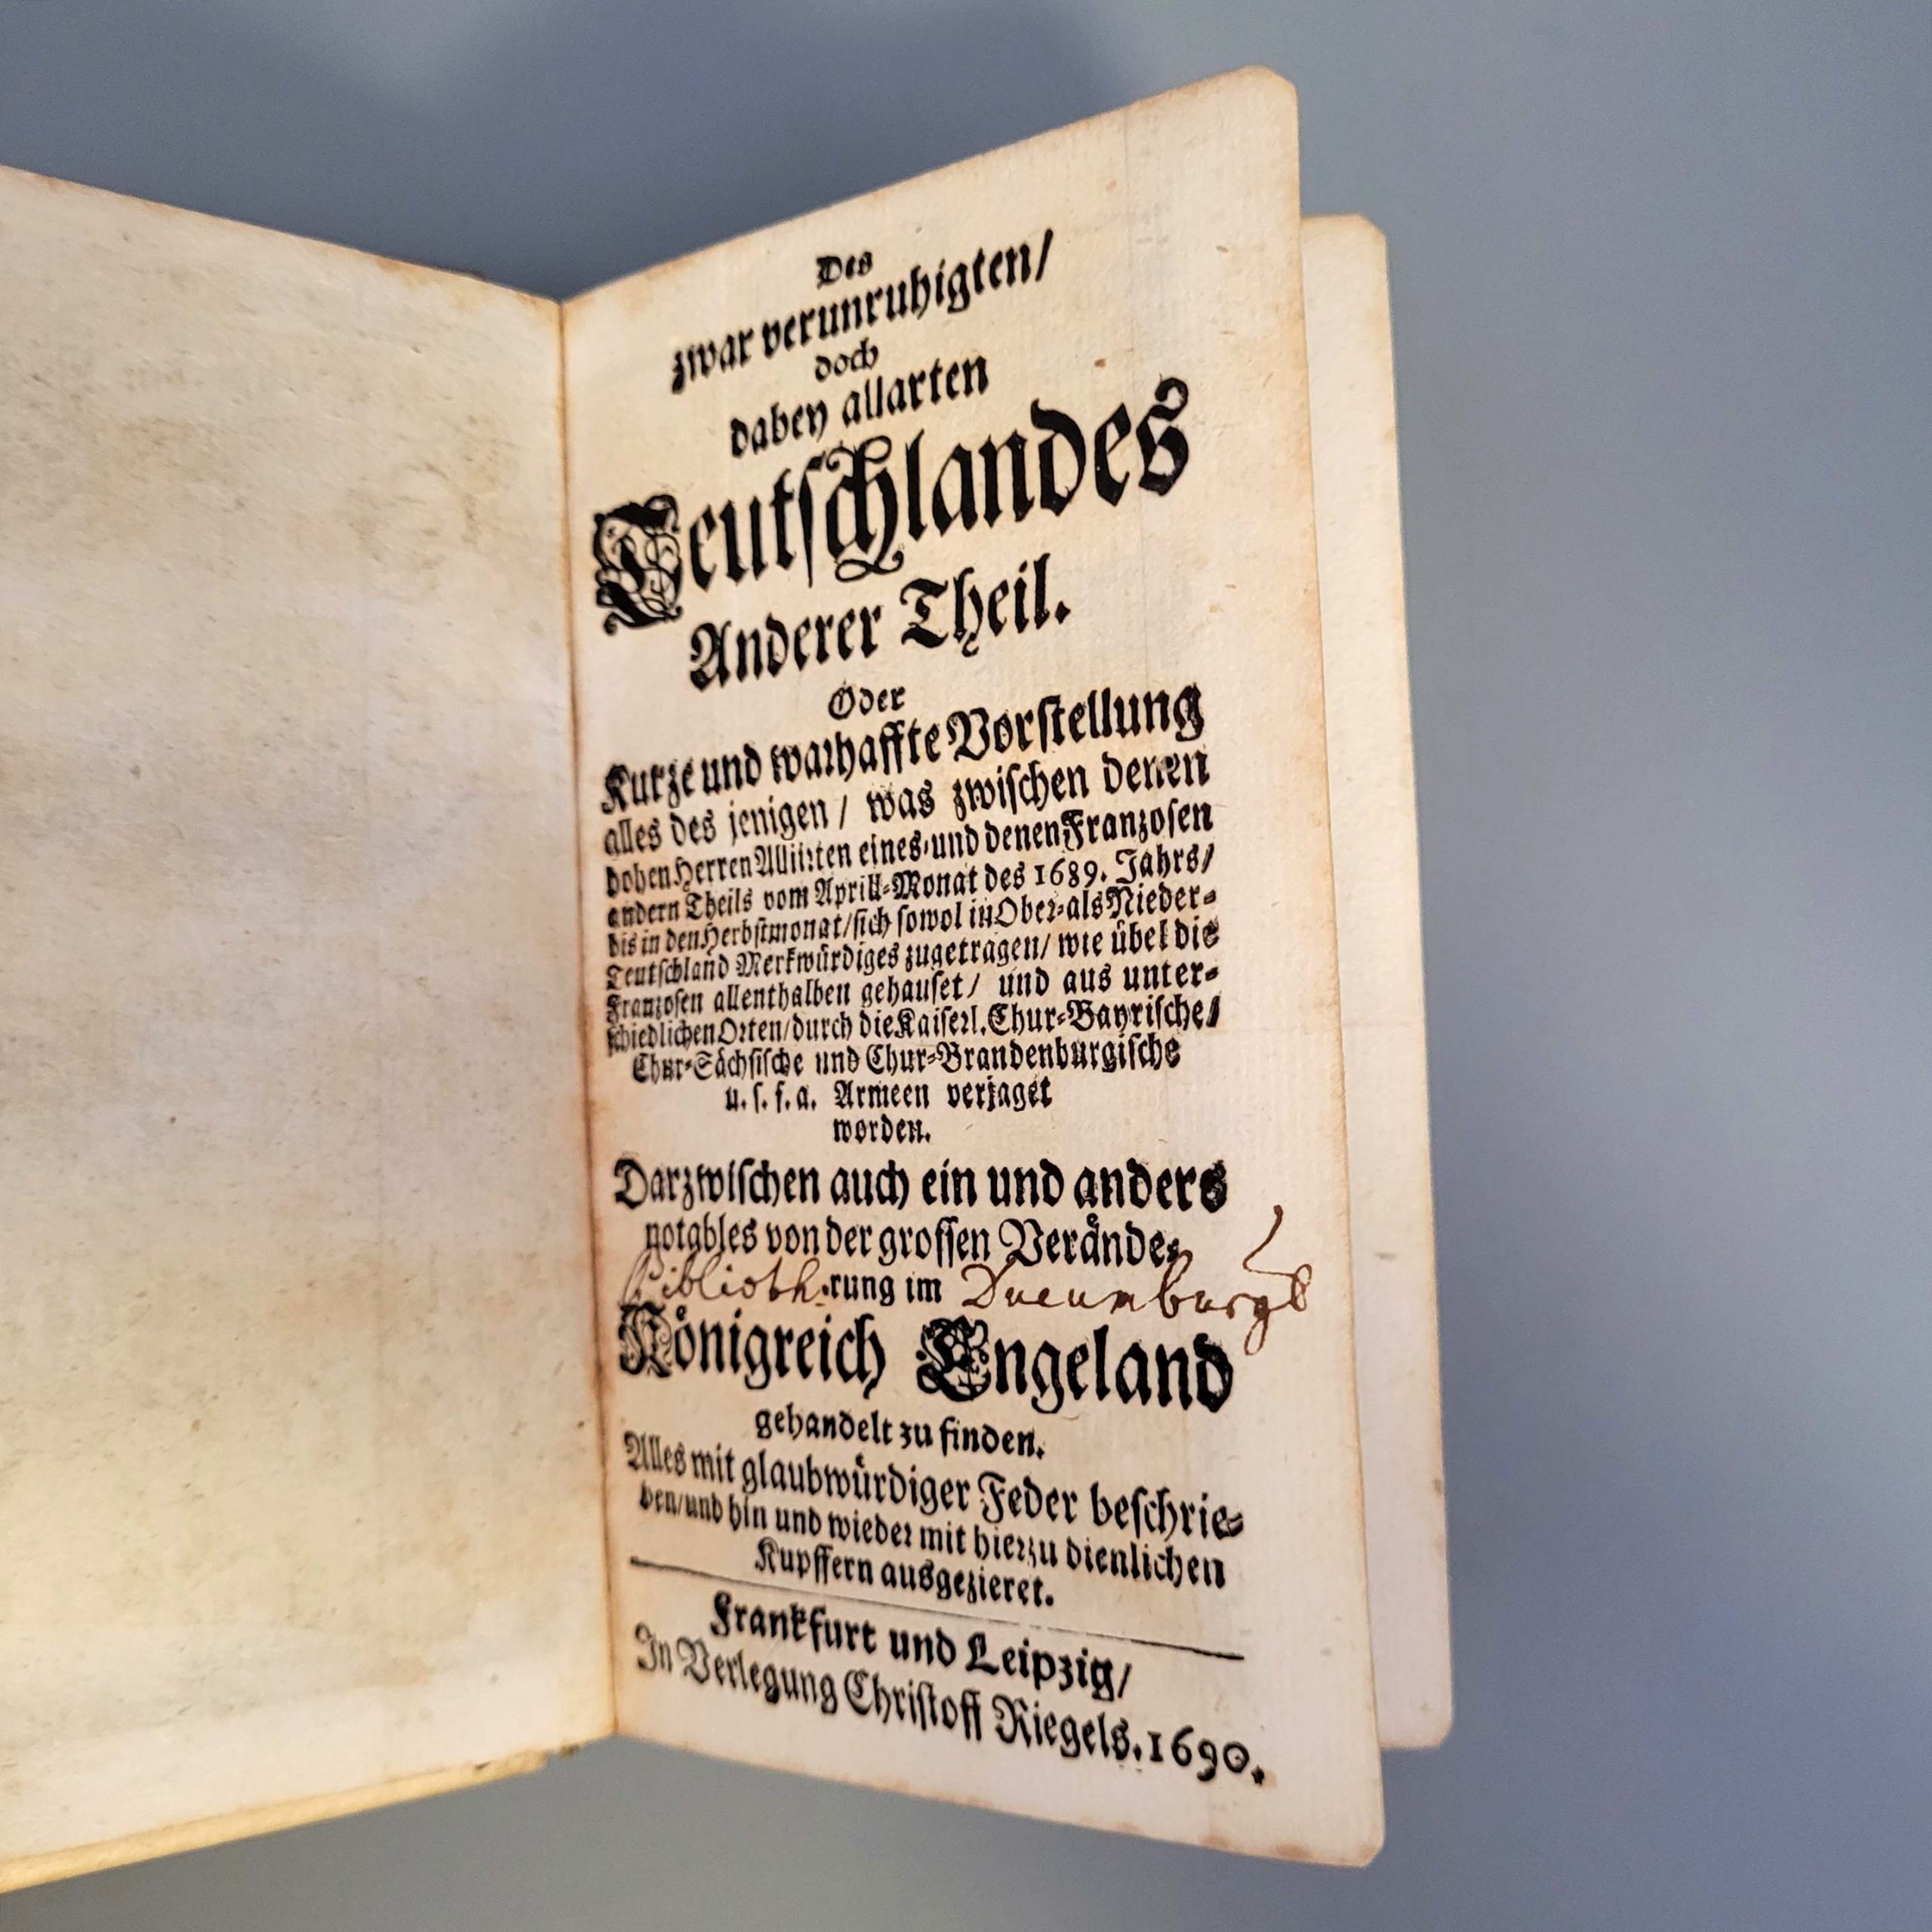 Des
zwar verunruhigten/
doch
dabey allarten
Teutschlandes
Anderer Theil.
Oder
Kurze und warhaffte Vorstellung
alles des jenigen / was zwischen denen
hohen Herren Alliirten eines- und denen Franzosen
andern Theils vom Aprill-Monat des 1689. Jahrs/
bis in den Herbstmonat/sich sowol in Ober-als Nieder-
Teutschland Merkwürdiges zugetragen/ wie übel die
Franzosen allenthalben gehauset/ und aus unter-
schiedlichen Orten/durch die Kaiserl. Chur-Bayrische/
Chur-Sächsische und Chur-Brandenburgische
u. s. f. a. Armeen verjaget
worden.
Darzwischen auch ein und anders
notables von der grossen Verände-
Biblioth. rung im
Königreich Engeland
gehandelt zu finden.
Alles mit glaubwürdiger Feder beschrie-
ben/und hin und wieder mit hierzu dienlichen
Kupffern ausgezieret.
Frankfurt und Leipzig/
In Verlegung Christoff Riegels. 1690.